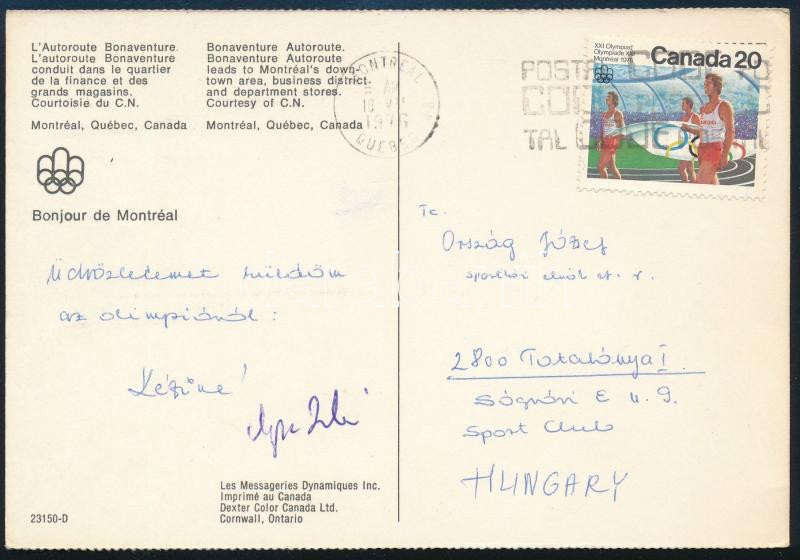 L'Autoroute Bonaventure.
L'autoroute Bonaventure
conduit dans le quartier
de la finance et des
grands magasins.
Courtoisie du C.N.
Montréal, Québec, Canada
Bonaventure Autoroute.
Bonaventure Autoroute
leads to Montréal's down-
town area, business district
and department stores.
Courtesy of C.N.
Montréal, Québec, Canada
Bonjour de Montréal
Üdvözletemet küldöm
az olimpiáról:
23150-D
Les Messageries Dynamiques Inc.
Imprimé au Canada
Dexter Color Canada Ltd.
Cornwall, Ontario
MONTREAL
1976
QUEBEC
POSTAL CODE
TAL
XXI Olympiad
Olympiade XXI
Montréal 1976
Canada 20
Tc.
Ország József
sportköri elnök et. r.
2800 Tatabánya I.
Ságvári E u. 9.
Sport Club
HUNGARY
darabanth